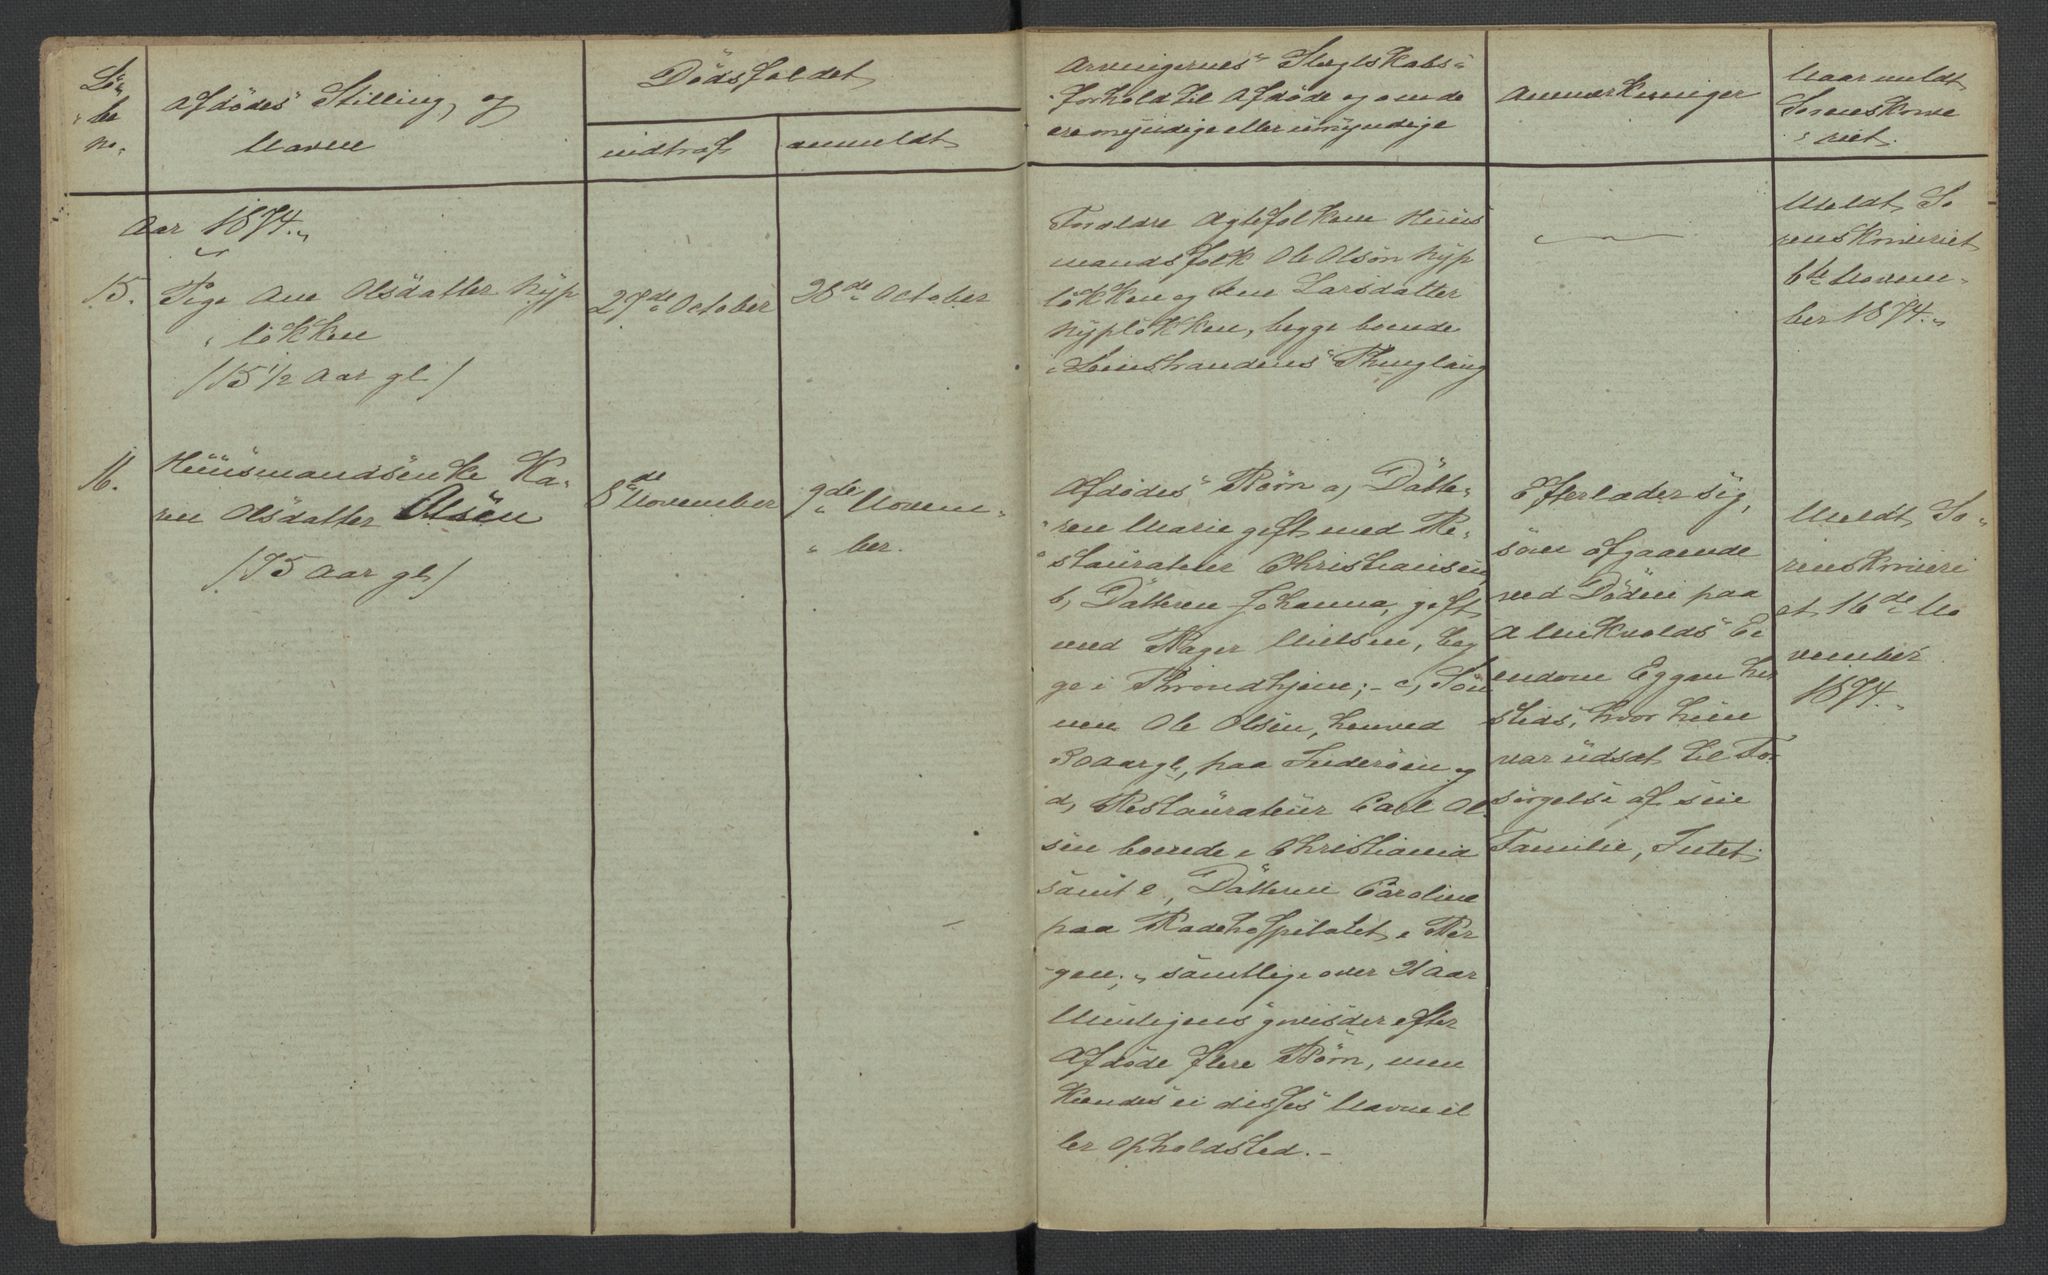 Lö-
be
no.
Afdödes Stilling og
Navn
Dödsfaldet
indtraf
anmeldt
Arvingernes Slegtskabs-
forhold til Afdöde og om de
ere myndige eller umyndige
Anmærkninger
Naar meldt
Sorenskrive
riet.
Aar 1874.
15.
Pige Ane Olsdatter Nyp
lökken
/15 1/2 Aar gl/
27de October
28de October
Foreldre Ægtefolkene Huus
mandsfolk Ole Olsön Nyp
lökken og Ane Larsdatter
Nyplökken, begge boende
i Leinstrandens Thinglaug
Meldt So
renskriveriet
6te Novem-
ber 1874.
16.
Huusmandsenke Ka-
ren Olsdatter Olsen
/75 Aar gl/
8de November
9de Novem-
ber.
Afdödes Börn a, Datte-
ren Marie gift med Re-
staurateur Christiansen
b, Datteren Johanna, gift
med Bager Nielsen, beg
ge i Throndhjem; - c, Sön
nen Ole Olsen, henved
30 Aar gl, paa Inderöen og
d, Restaurateur Carl Ol
sen boende i Christiania
samt e, Datteren Caroline
paa Radehospitalet i Ber
gen; samtlige over 21 Aar
Muligens gives der efter
Afdöde flere Börn, men
Kiendes ei disses Navne el
ler Opholdsted. -
Efterlader sig,
som afgaaende
ved Döden paa
A Miikvolds Ei
endom Eggan her
steds, hvor hun
var udsat til For
sörgelse af sin
Familie, Intet
Meldt So-
renskriveri
et 16de No
vember
1874.